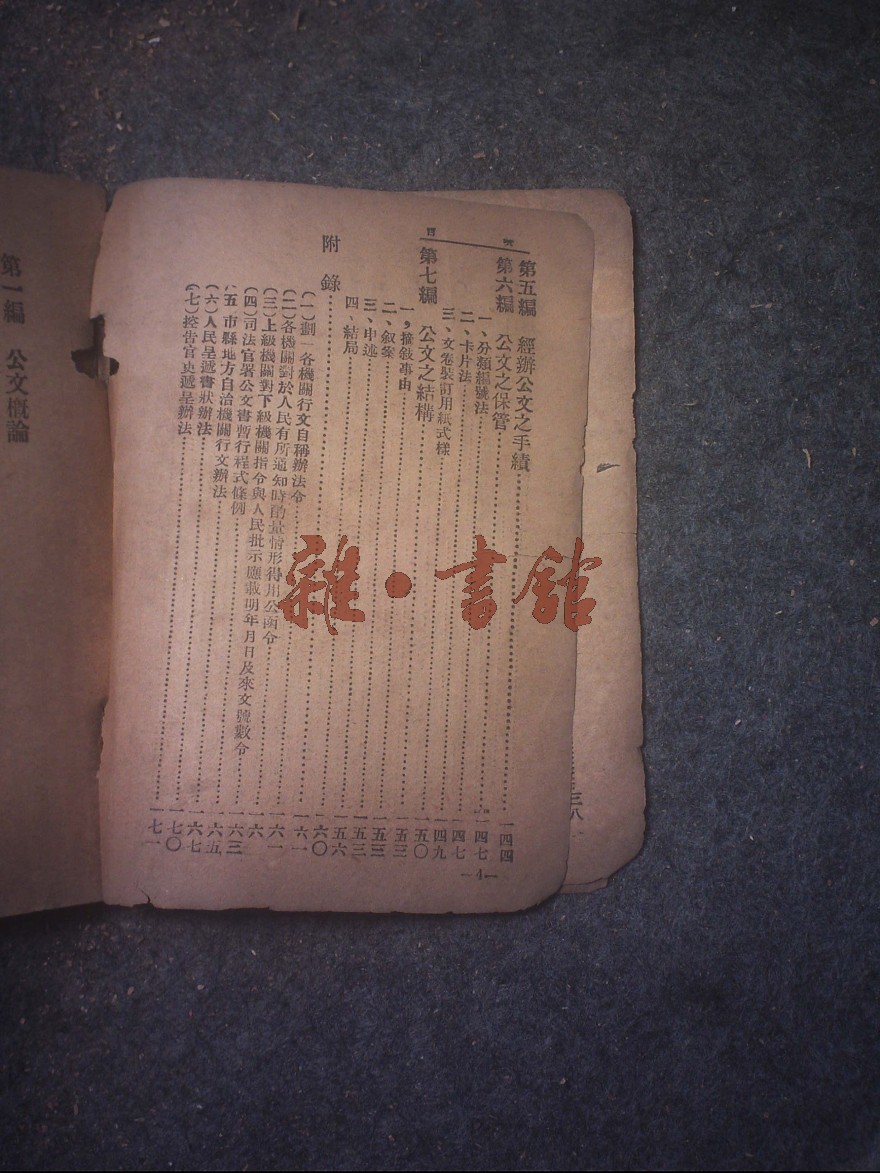 目 次
第五編 經辦公文之手續……一四四
第六編 公文之保管……一四七
一、分類編號法……一四七
二、卡片法……一四七
三、文卷裝訂用紙式樣……一四九
第七編 公文之結構……一五〇
一，摘敍事由……一五三
二、叙案……一五三
三、申述……一五三
四、結局……一五六
附 錄……一六〇
(一)劃一各機關行文自稱辦法令……一六一
(二)各機關對於人民有所通知時酌量情形得用公函令……一六一
(三)上級機關對下級機關指令與人民批示應載明年月日及來文號數令
(四)司法官署公文書暫行程式條例……一六三
五 市縣地方自治機關行文辦法……一六五
(六)人民呈遞書狀辦法……一六七
(七)控告官吏遞呈辦法……一七〇
一七一
—4—
第一編 公文概論
三八
雜·書館